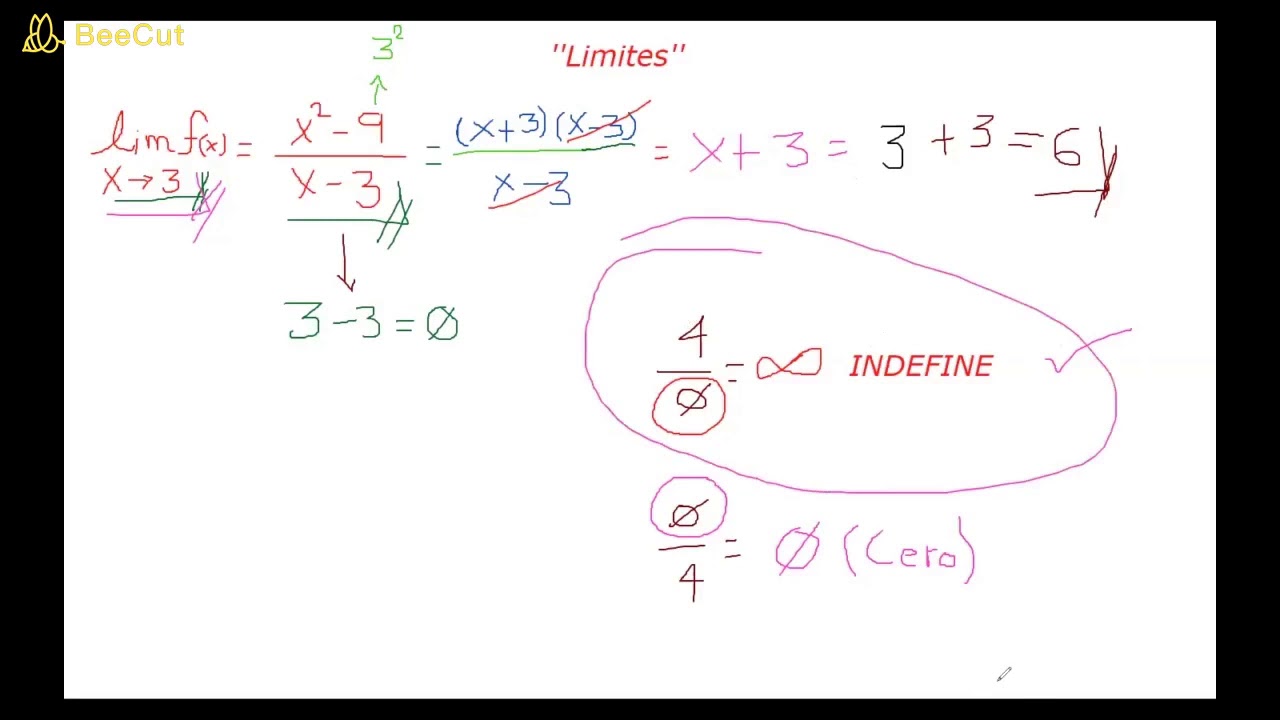 BeeCut
"Limites"
3²
lim f(x) = x² - 9 / x - 3 = (x+3)(x-3) / x - 3 = x + 3 = 3 + 3 = 6
x → 3
3 - 3 = Ø
4 / Ø = ∞ INDEFINE ✓
Ø / 4 = Ø (Cero)